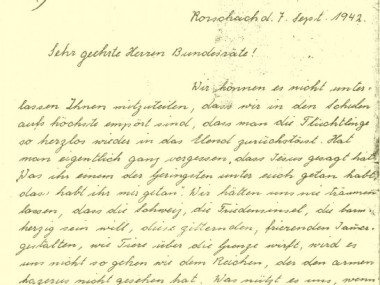 Rorschach d. 7. Sept. 1942.
Sehr geehrte Herren Bundesräte!
Wir können es nicht unter-
lassen Ihnen mitzuteilen, dass wir in den Schulen
aufs höchste empört sind, dass man die Flüchtlinge
so herzlos wieder in das Elend zurückstösst. Hat
man eigentlich ganz vergessen, dass Jesus gesagt hat
"Was ihr einem der Geringsten unter euch getan habt,
das habt ihr mir getan." Wir hätten uns nie träumen
lassen, dass die Schweiz, die Friedensinsel, die barm-
herzig sein will, diese zitternden, frierenden Jammer-
gestalten wie Tiere über die Grenze wirft, wird es
uns nicht so gehen wie dem Reichen, der den armen
Lazarus nicht gesehen hat. Was nützt es uns, wenn